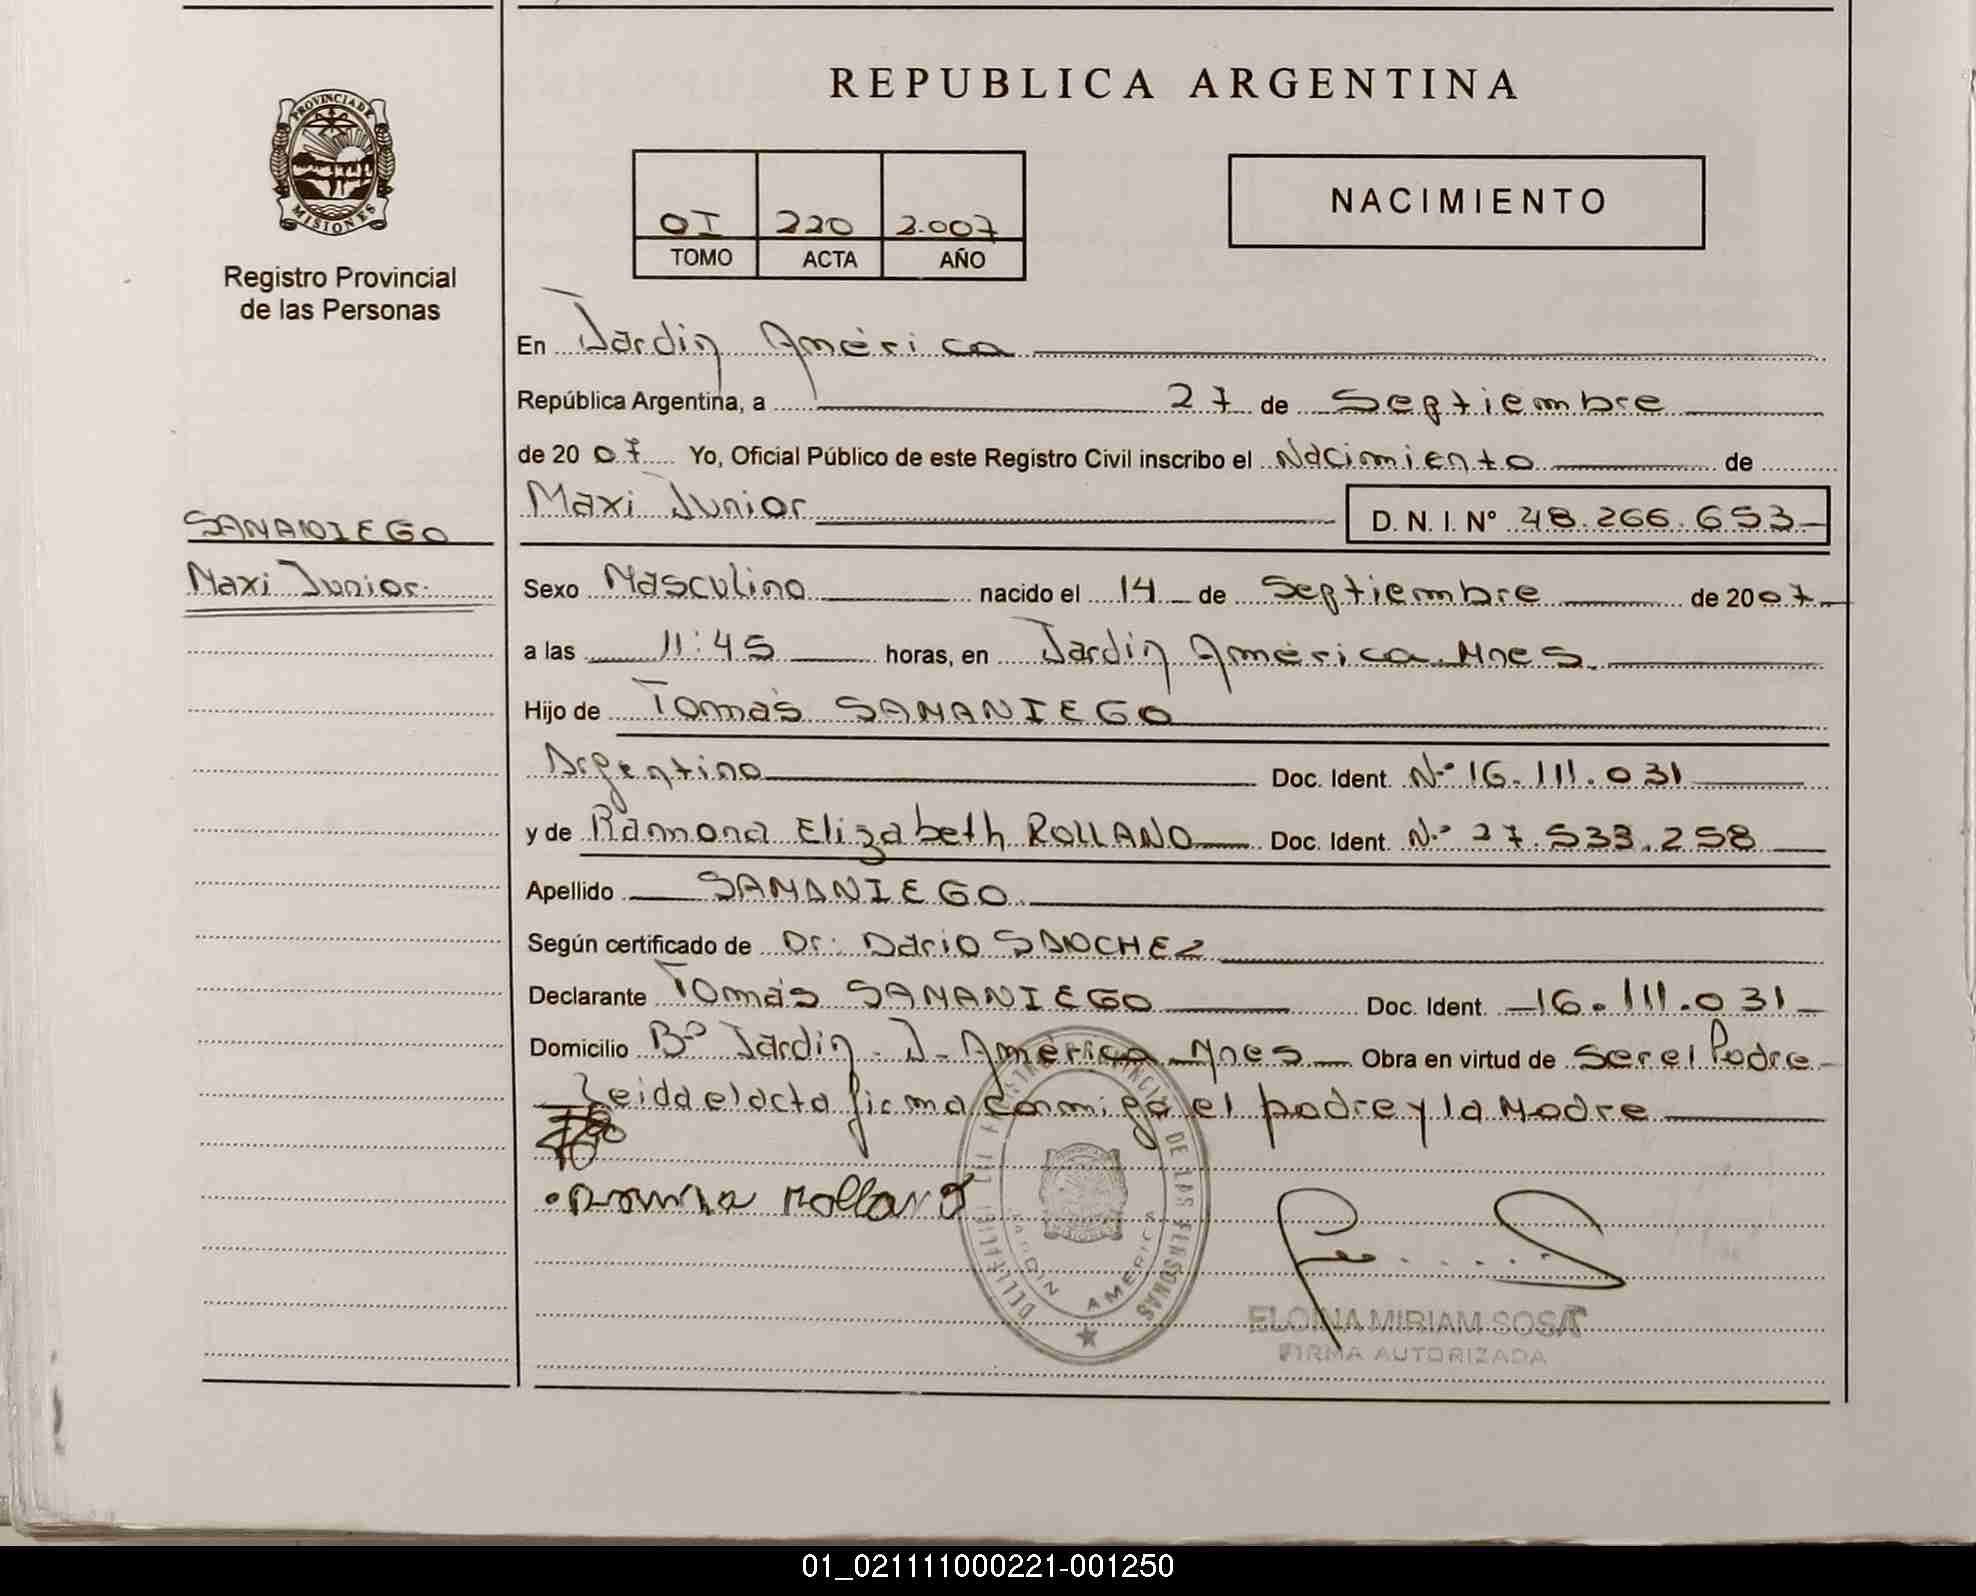 REPUBLICA ARGENTINA
PROVINCIA DE MISIONES
Registro Provincial
de las Personas
OI 220 2.007
TOMO ACTA AÑO
NACIMIENTO
En Jardin América
República Argentina, a 27 de Septiembre
de 2007 Yo, Oficial Público de este Registro Civil inscribo el Nacimiento de
Maxi Junior D. N. I. N° 48.266.653
SAMANIEGO
Maxi Junior
Sexo Masculino nacido el 14 de Septiembre de 2007
a las 11:45 horas, en Jardin América Mnes
Hijo de Tomás SAMANIEGO
Argentino Doc. Ident. N° 16.111.031
y de Ramona Elizabeth ROLLANO Doc. Ident. N° 27.533.258
Apellido SAMANIEGO
Según certificado de Dr: Dario SANCHEZ
Declarante Tomás SAMANIEGO Doc. Ident. 16.111.031
Domicilio B° Jardin - J- América Mnes Obra en virtud de ser el Padre
Leida el acta firma conmigo el padre y la Madre
Rollano
JARDIN AMERICA
ELOINA MIRIAM SOSA
FIRMA AUTORIZADA
01_021111000221-001250